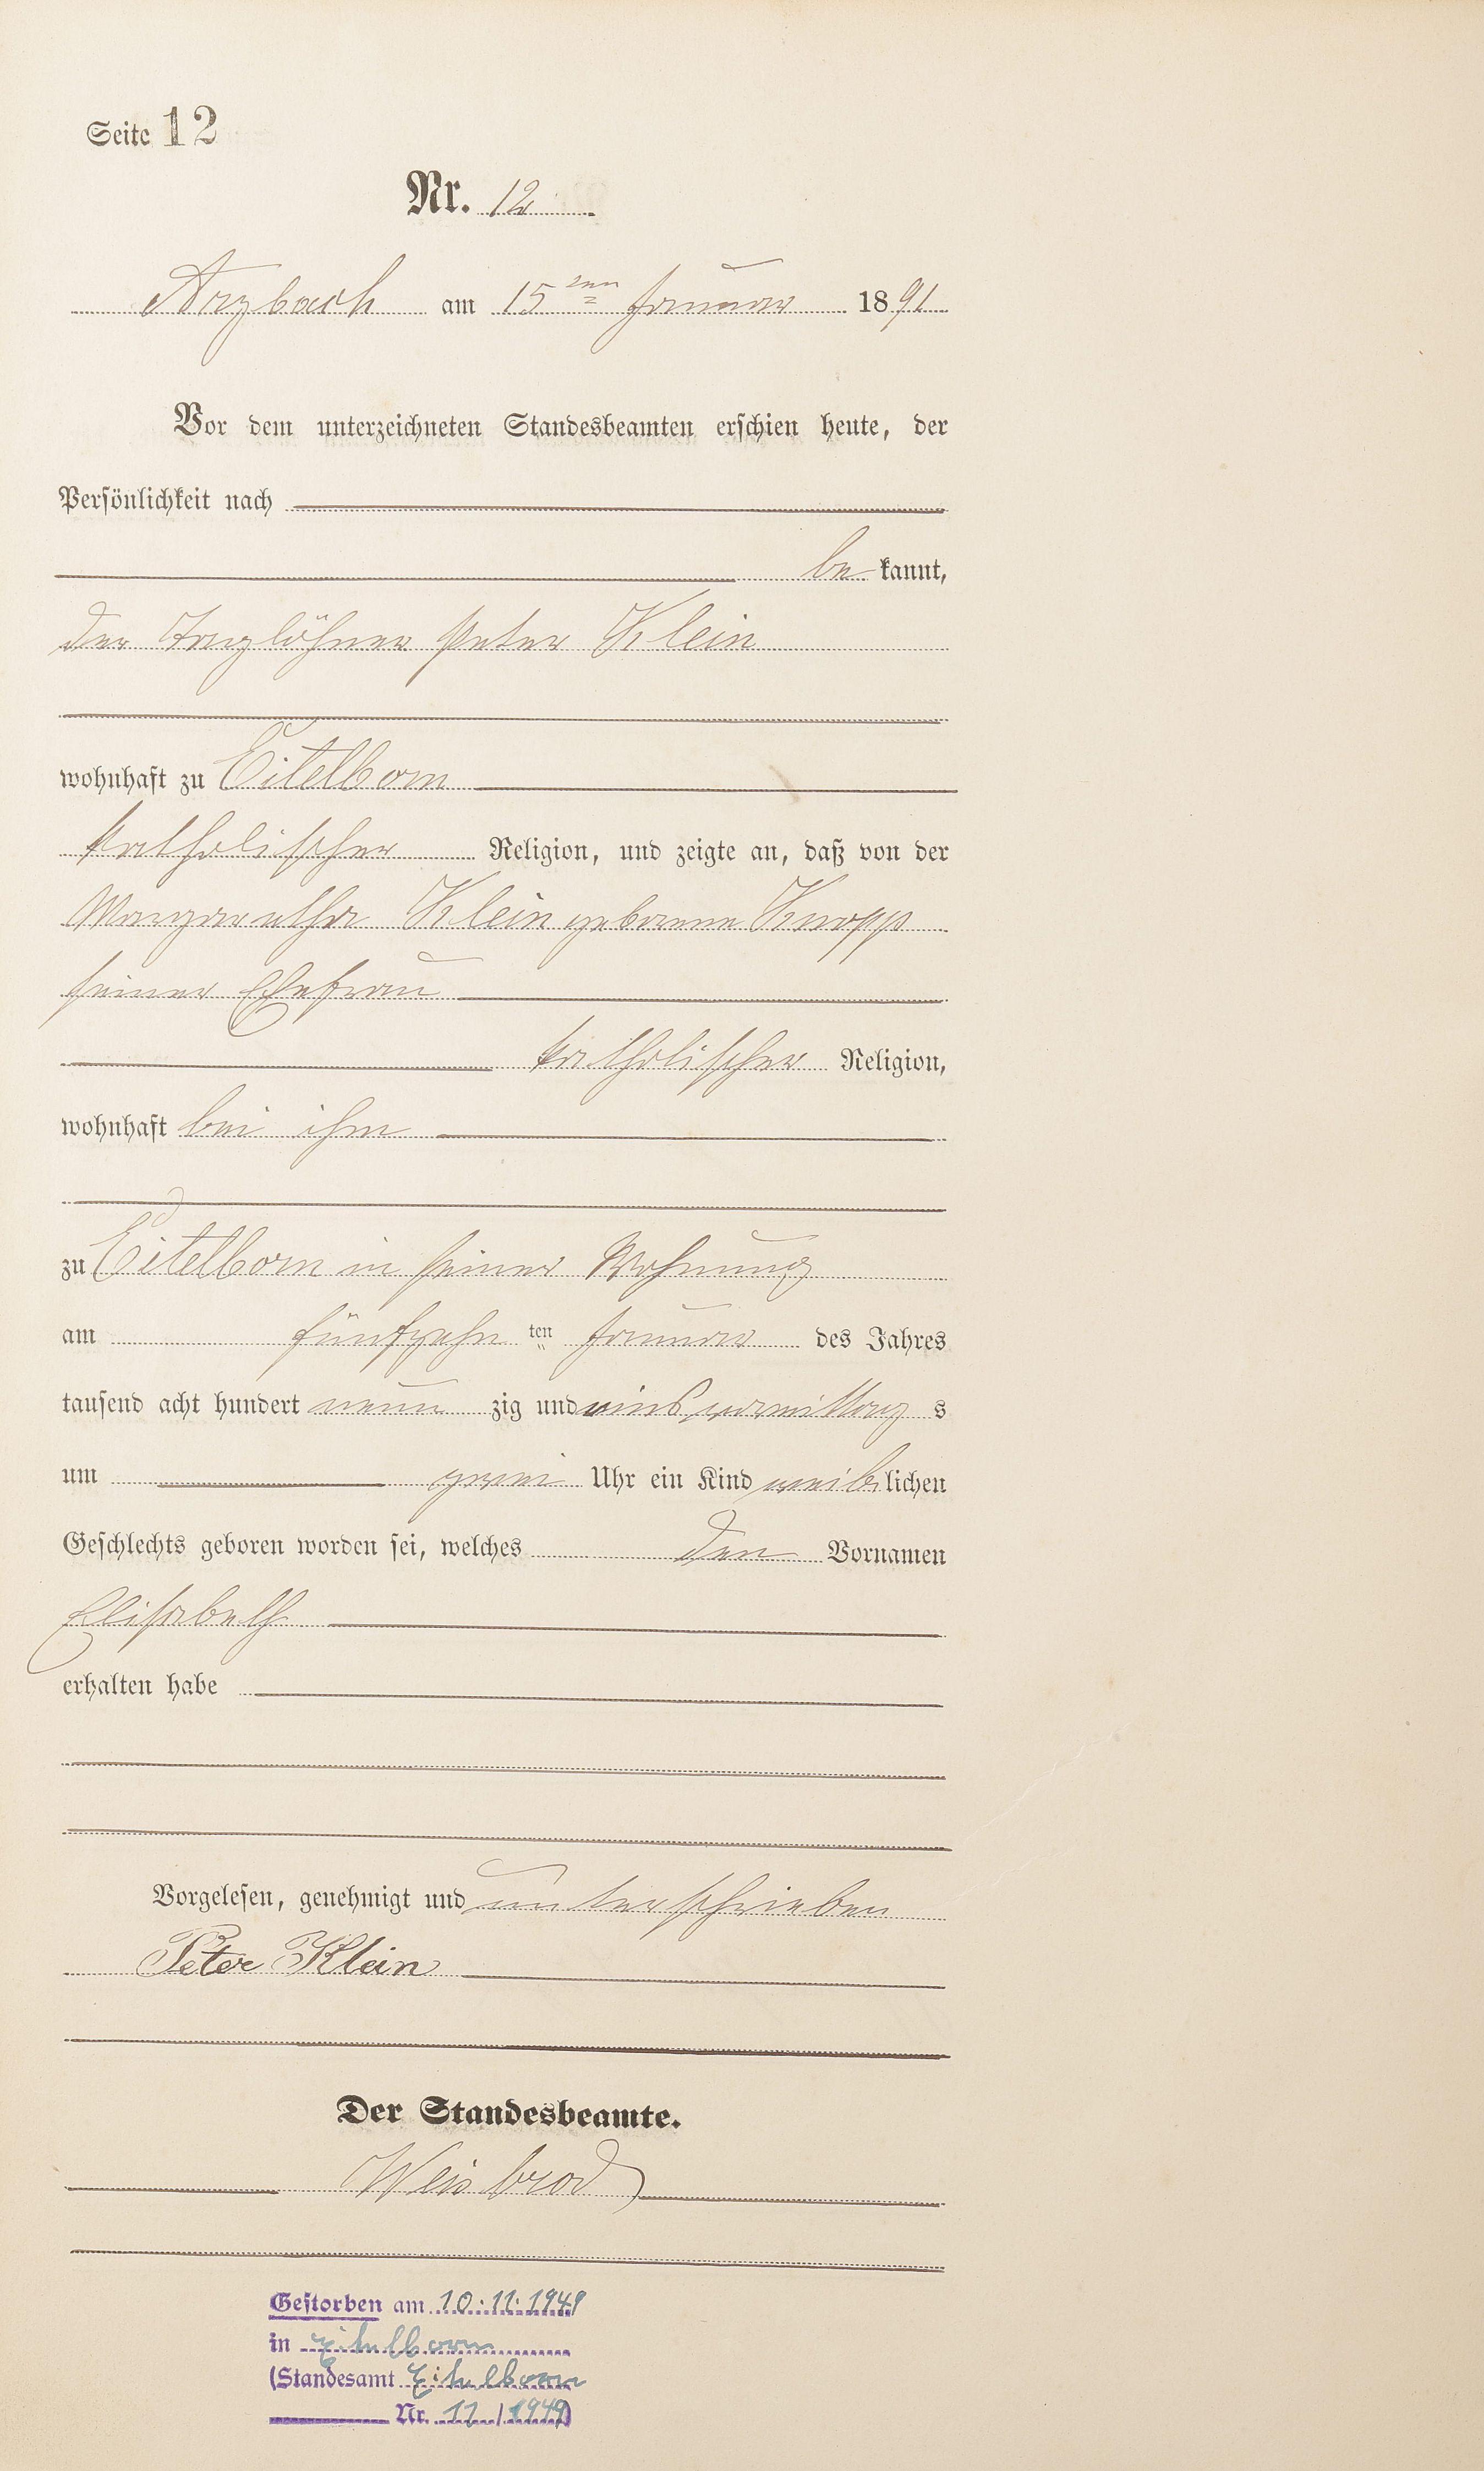 Seite 12
Nr. 12
Arzbach am 15ten Januar 1891
Vor dem unterzeichneten Standesbeamten erschien heute, der
Persönlichkeit nach
be kannt,
der Taglöhner Peter Klein
wohnhaft zu Eitelborn
katholischer Religion, und zeigte an, daß von der
Margaretha Klein geborene Knopp
seiner Ehefrau
katholischer Religion,
wohnhaft bei ihm
zu Eitelborn in seiner Wohnung
am fünfzehn ten Januar des Jahres
tausend acht hundert neun zig und eins vormittag s
um zwei Uhr ein Kind weib lichen
Geschlechts geboren worden sei, welches den Vornamen
Elisabeth
erhalten habe
Vorgelesen, genehmigt und unterschrieben
Peter Klein
Der Standesbeamte.
Weisbrod
Gestorben am 10.11.1949
in Eitelborn
(Standesamt Eitelborn
Nr. 11/1949)